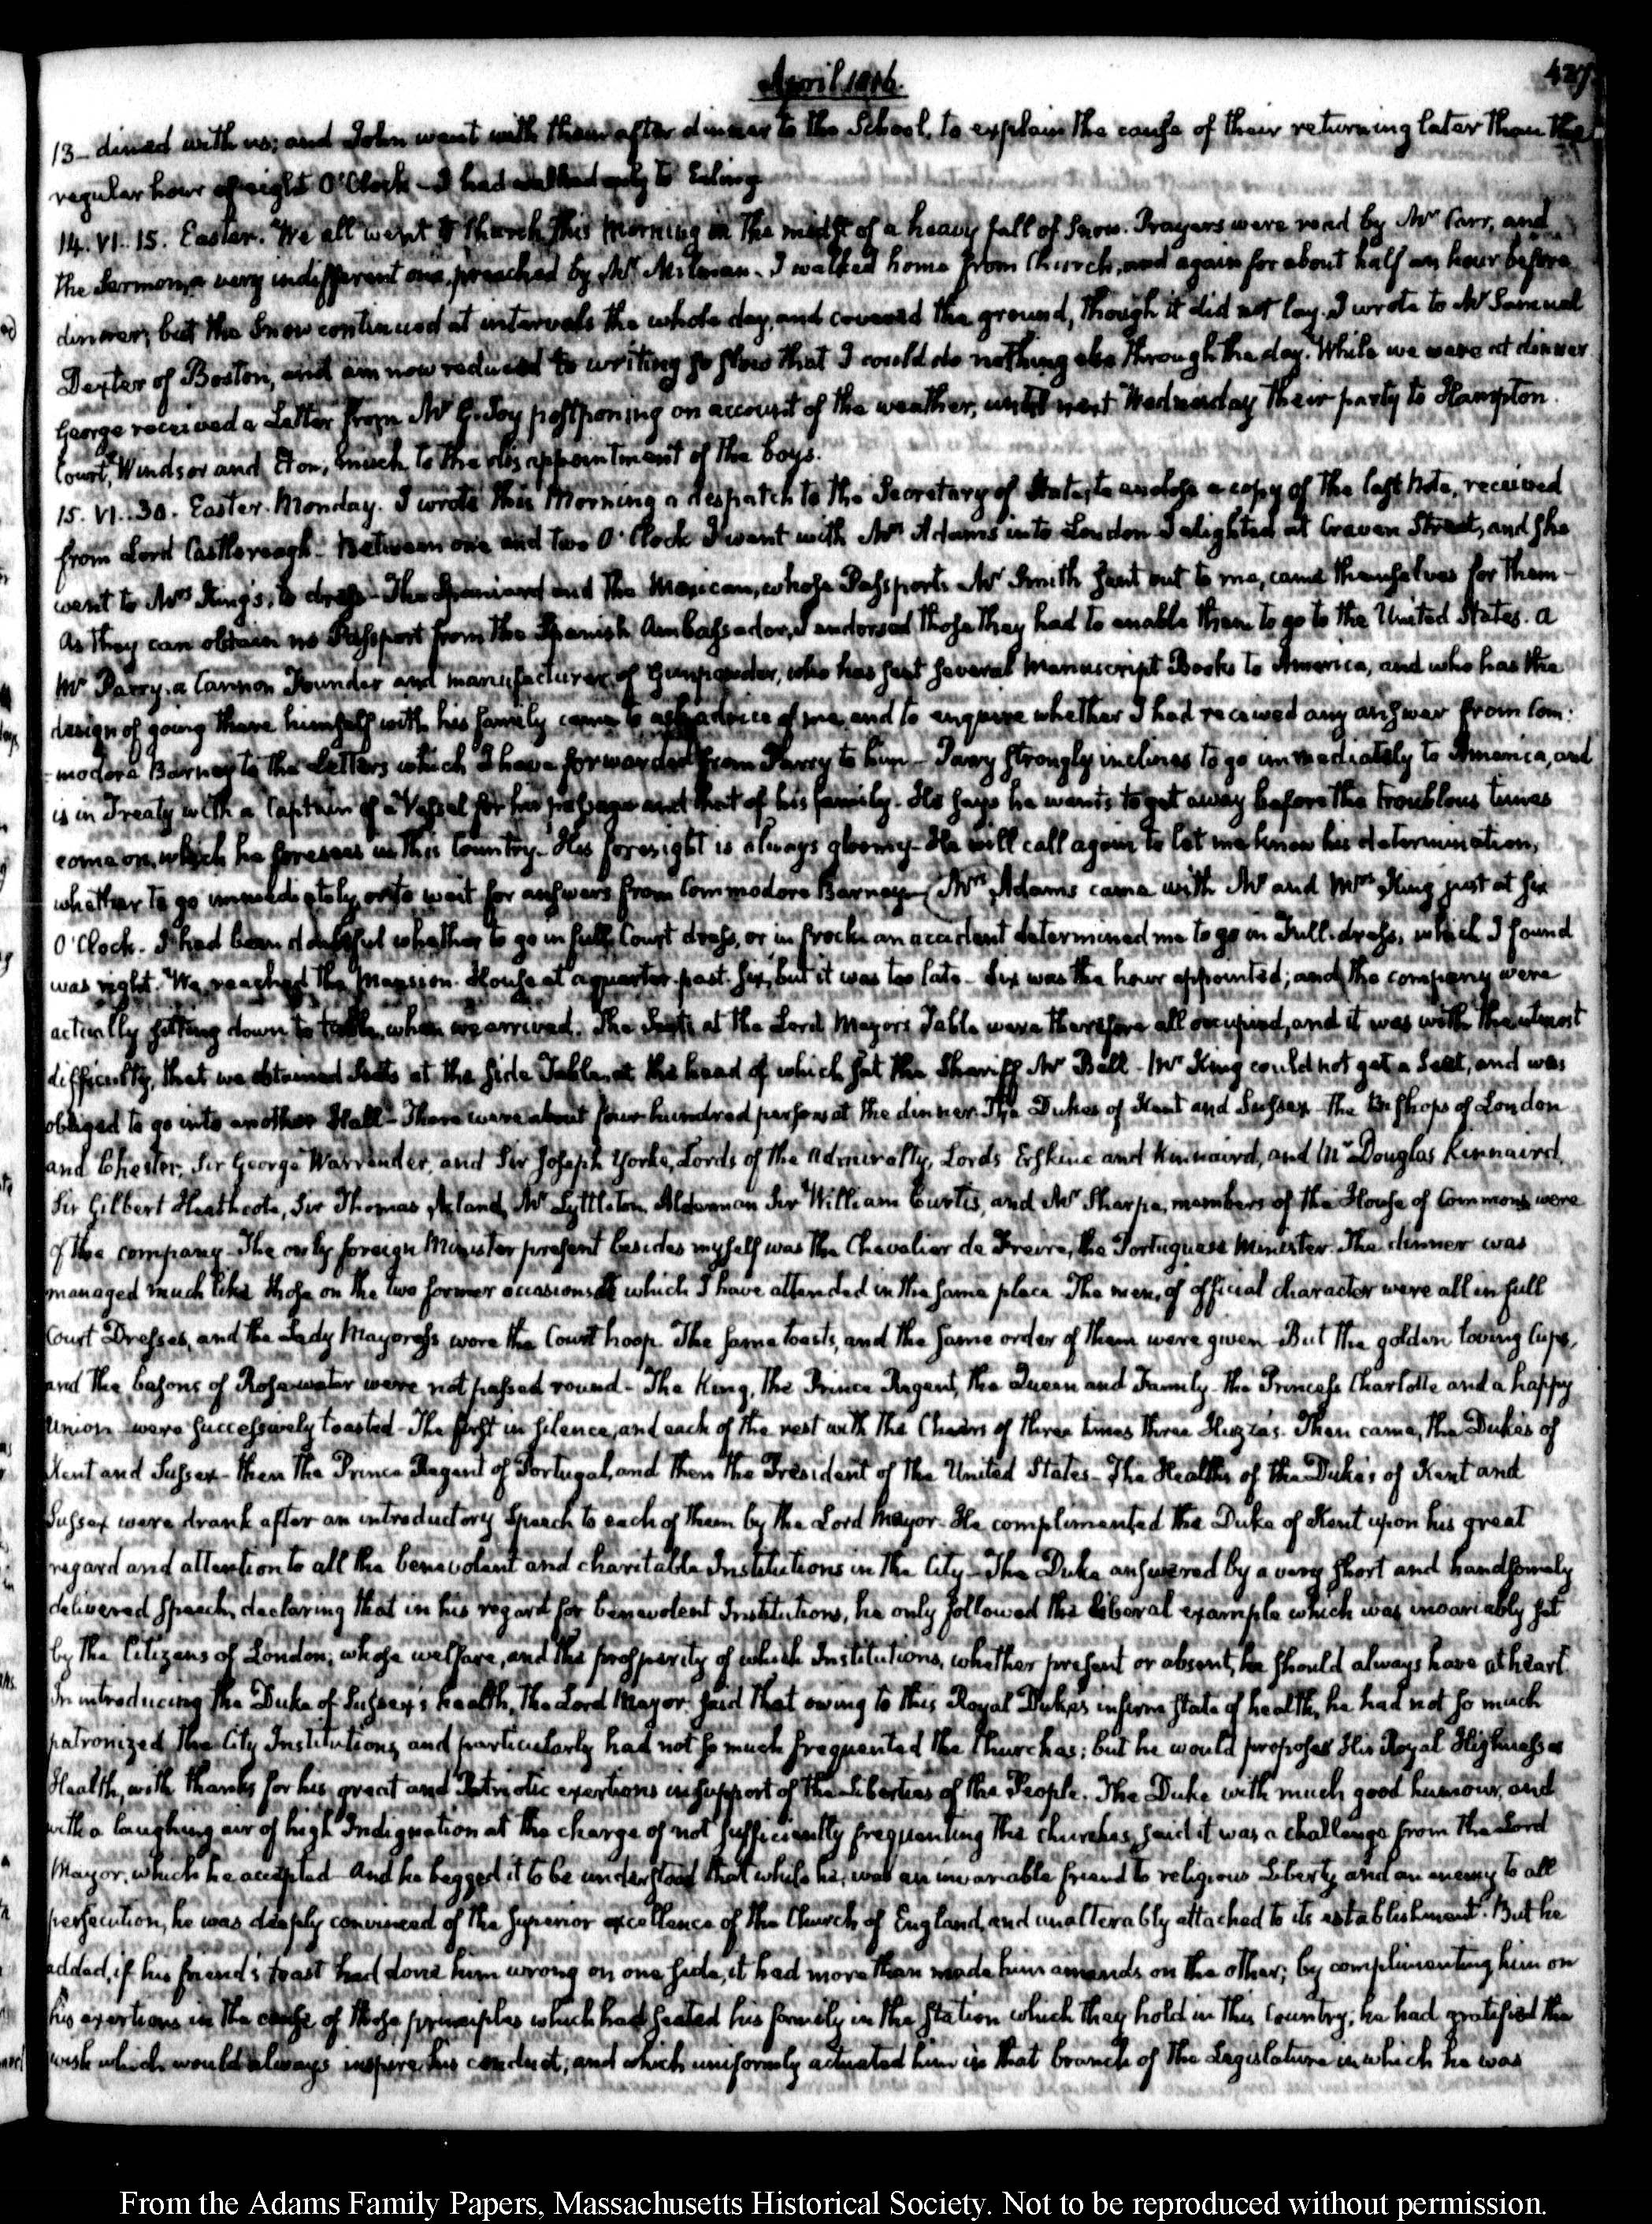 April 1816.
427
13 - dined with us; and John went with them after dinner to the School, to explain the cause of their returning later than the
regular hour of eight O'Clock - I had walked only to Ealing
14. VI. 15. Easter. We all went to Church this Morning in the midst of a heavy fall of Snow. Prayers were read by Mr Carr, and
the Sermon, a very indifferent one, preached by Mr Milman. I walked home from Church, and again for about half an hour before
dinner; but the Snow continued at intervals the whole day, and covered the ground, though it did not lay. I wrote to Mr Samuel
Dexter of Boston, and am now reduced to writing so slow that I could do nothing else through the day. While we were at dinner
George received a Letter from Mr G. Joy postponing on account of the weather, until next Wednesday their party to Hampton
Court, Windsor and Eton, much to the disappointment of the boys.
15. VI..30. Easter Monday. I wrote this Morning a despatch to the Secretary of State, to enclose a copy of the last Note, received
from Lord Castlereagh - Between one and two O'Clock I went with Mrs Adams into London I alighted at Craven Street, and she
went to Mrs King's, to dress - The Spaniard and the Mexican, whose Passports Mr Smith sent out to me, came themselves for them -
As they can obtain no Passport from the Spanish Ambassador, I endorsed those they had to enable them to go to the United States. a
Mr Parry, a Cannon Founder and manufacturer of Gunpowder, who has sent several Manuscript Books to America, and who has the
design of going there himself with his family came to ask advice of me, and to enquire whether I had received any answer from Com:
-modore Barney to the Letters which I have forwarded from Parry to him - Parry strongly inclines to go immediately to America, and
is in Treaty with a Captain of a Vessel for his passage and that of his family - He says he wants to get away before the troublous times
come on, which he foresees in this Country - His foresight is always gloomy - He will call again to let me know his determination,
whether to go immediately, or to wait for answers from Commodore Barney - Mrs Adams came with Mr and Mrs King just at six
O'Clock. I had been doubtful whether to go in full Court dress, or in frock: an accident determined me to go in Full dress, which I found
was right. We reached the Mansion-House at a quarter past six, but it was too late - Six was the hour appointed; and the company were
actually sitting down to table, when we arrived. The Seats at the Lord Mayor's Table were therefore all occupied, and it was with the utmost
difficulty, that we obtained Seats at the side Table, at the head of which sat the Sheriff Mr Bell - Mr King could not get a Seat, and was
obliged to go into another Hall - There were about four hundred persons at the dinner. The Dukes of Kent and Sussex - The Bishops of London
and Chester, Sir George Warrender, and Sir Joseph Yorke, Lords of the Admiralty, Lords Erskine and Kinnaird, and Mr Douglas Kinnaird
Sir Gilbert Heathcote, Sir Thomas Acland, Mr Lyttleton, Alderman Sir William Curtis, and Mr Sharpe, members of the House of Commons were
of the company - The only foreign Minister present besides myself was the Chevalier de Freire, the Portuguese Minister. The dinner was
managed much like those on the two former occasions at which I have attended in the same place - The men, of official character were all in full
Court Dresses, and the Lady Mayoress wore the Court hoop. The same toasts, and the same order of them were given - But the golden loving Cups,
and the basons of Rose-water were not passed round - The King, the Prince Regent, the Queen and Family - the Princess Charlotte and a happy
Union - were successively toasted - The first in silence, and each of the rest with the Cheers of three times three Huzzas. Then came, the Dukes of
Kent and Sussex - then the Prince Regent of Portugal, and then the President of the United States - The Healths of the Dukes of Kent and
Sussex were drank after an introductory Speech to each of them by the Lord Mayor - He complimented the Duke of Kent upon his great
regard and attention to all the benevolent and charitable Institutions in the City - The Duke answered by a very short and handsomely
delivered speech, declaring that in his regard for benevolent Institutions, he only followed the liberal example which was invariably set
by the Citizens of London; whose welfare, and the prosperity of which Institutions, whether present or absent, he should always have at heart.
In introducing the Duke of Sussex's health, the Lord Mayor said that owing to this Royal Duke's infirm state of health, he had not so much
patronized the City Institutions, and particularly had not so much frequented the Churches; but he would propose His Royal Highness's
Health, with thanks for his great and Patriotic exertions in support of the Liberties of the People. The Duke with much good humour, and
with a laughing air of high Indignation at the charge of not sufficiently frequenting the churches, said it was a challenge from the Lord
Mayor, which he accepted - And he begged it to be understood that while he, was an invariable friend to religious Liberty and an enemy to all
persecution, he was deeply convinced of the superior excellence of the Church of England, and unalterably attached to its establishment. But he
added, if his friend's toast had done him wrong on one side, it had more than made him amends on the other; by complimenting him on
his exertions in the cause of those principles which had seated his family in the station which they hold in this Country; he had gratified the
wish which would always inspire his conduct; and which uniformly actuated him in that branch of the Legislature in which he was
From the Adams Family Papers, Massachusetts Historical Society. Not to be reproduced without permission.